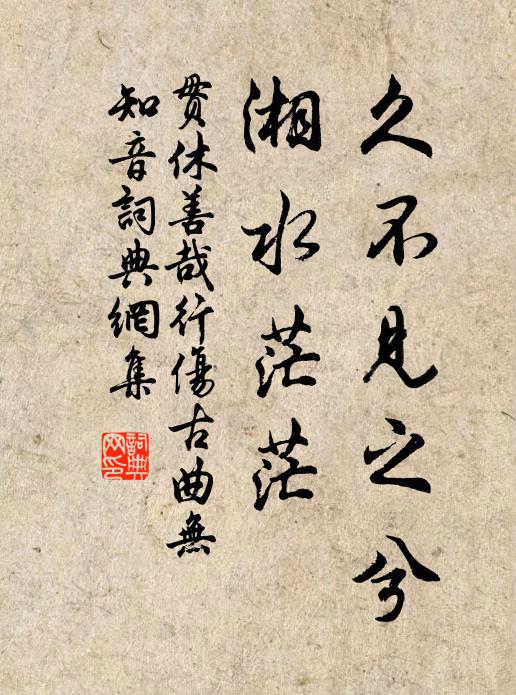 久不見之兮
湘水茫茫
貫休善哉行傷古曲無
知音詞典網集
詞典
网印